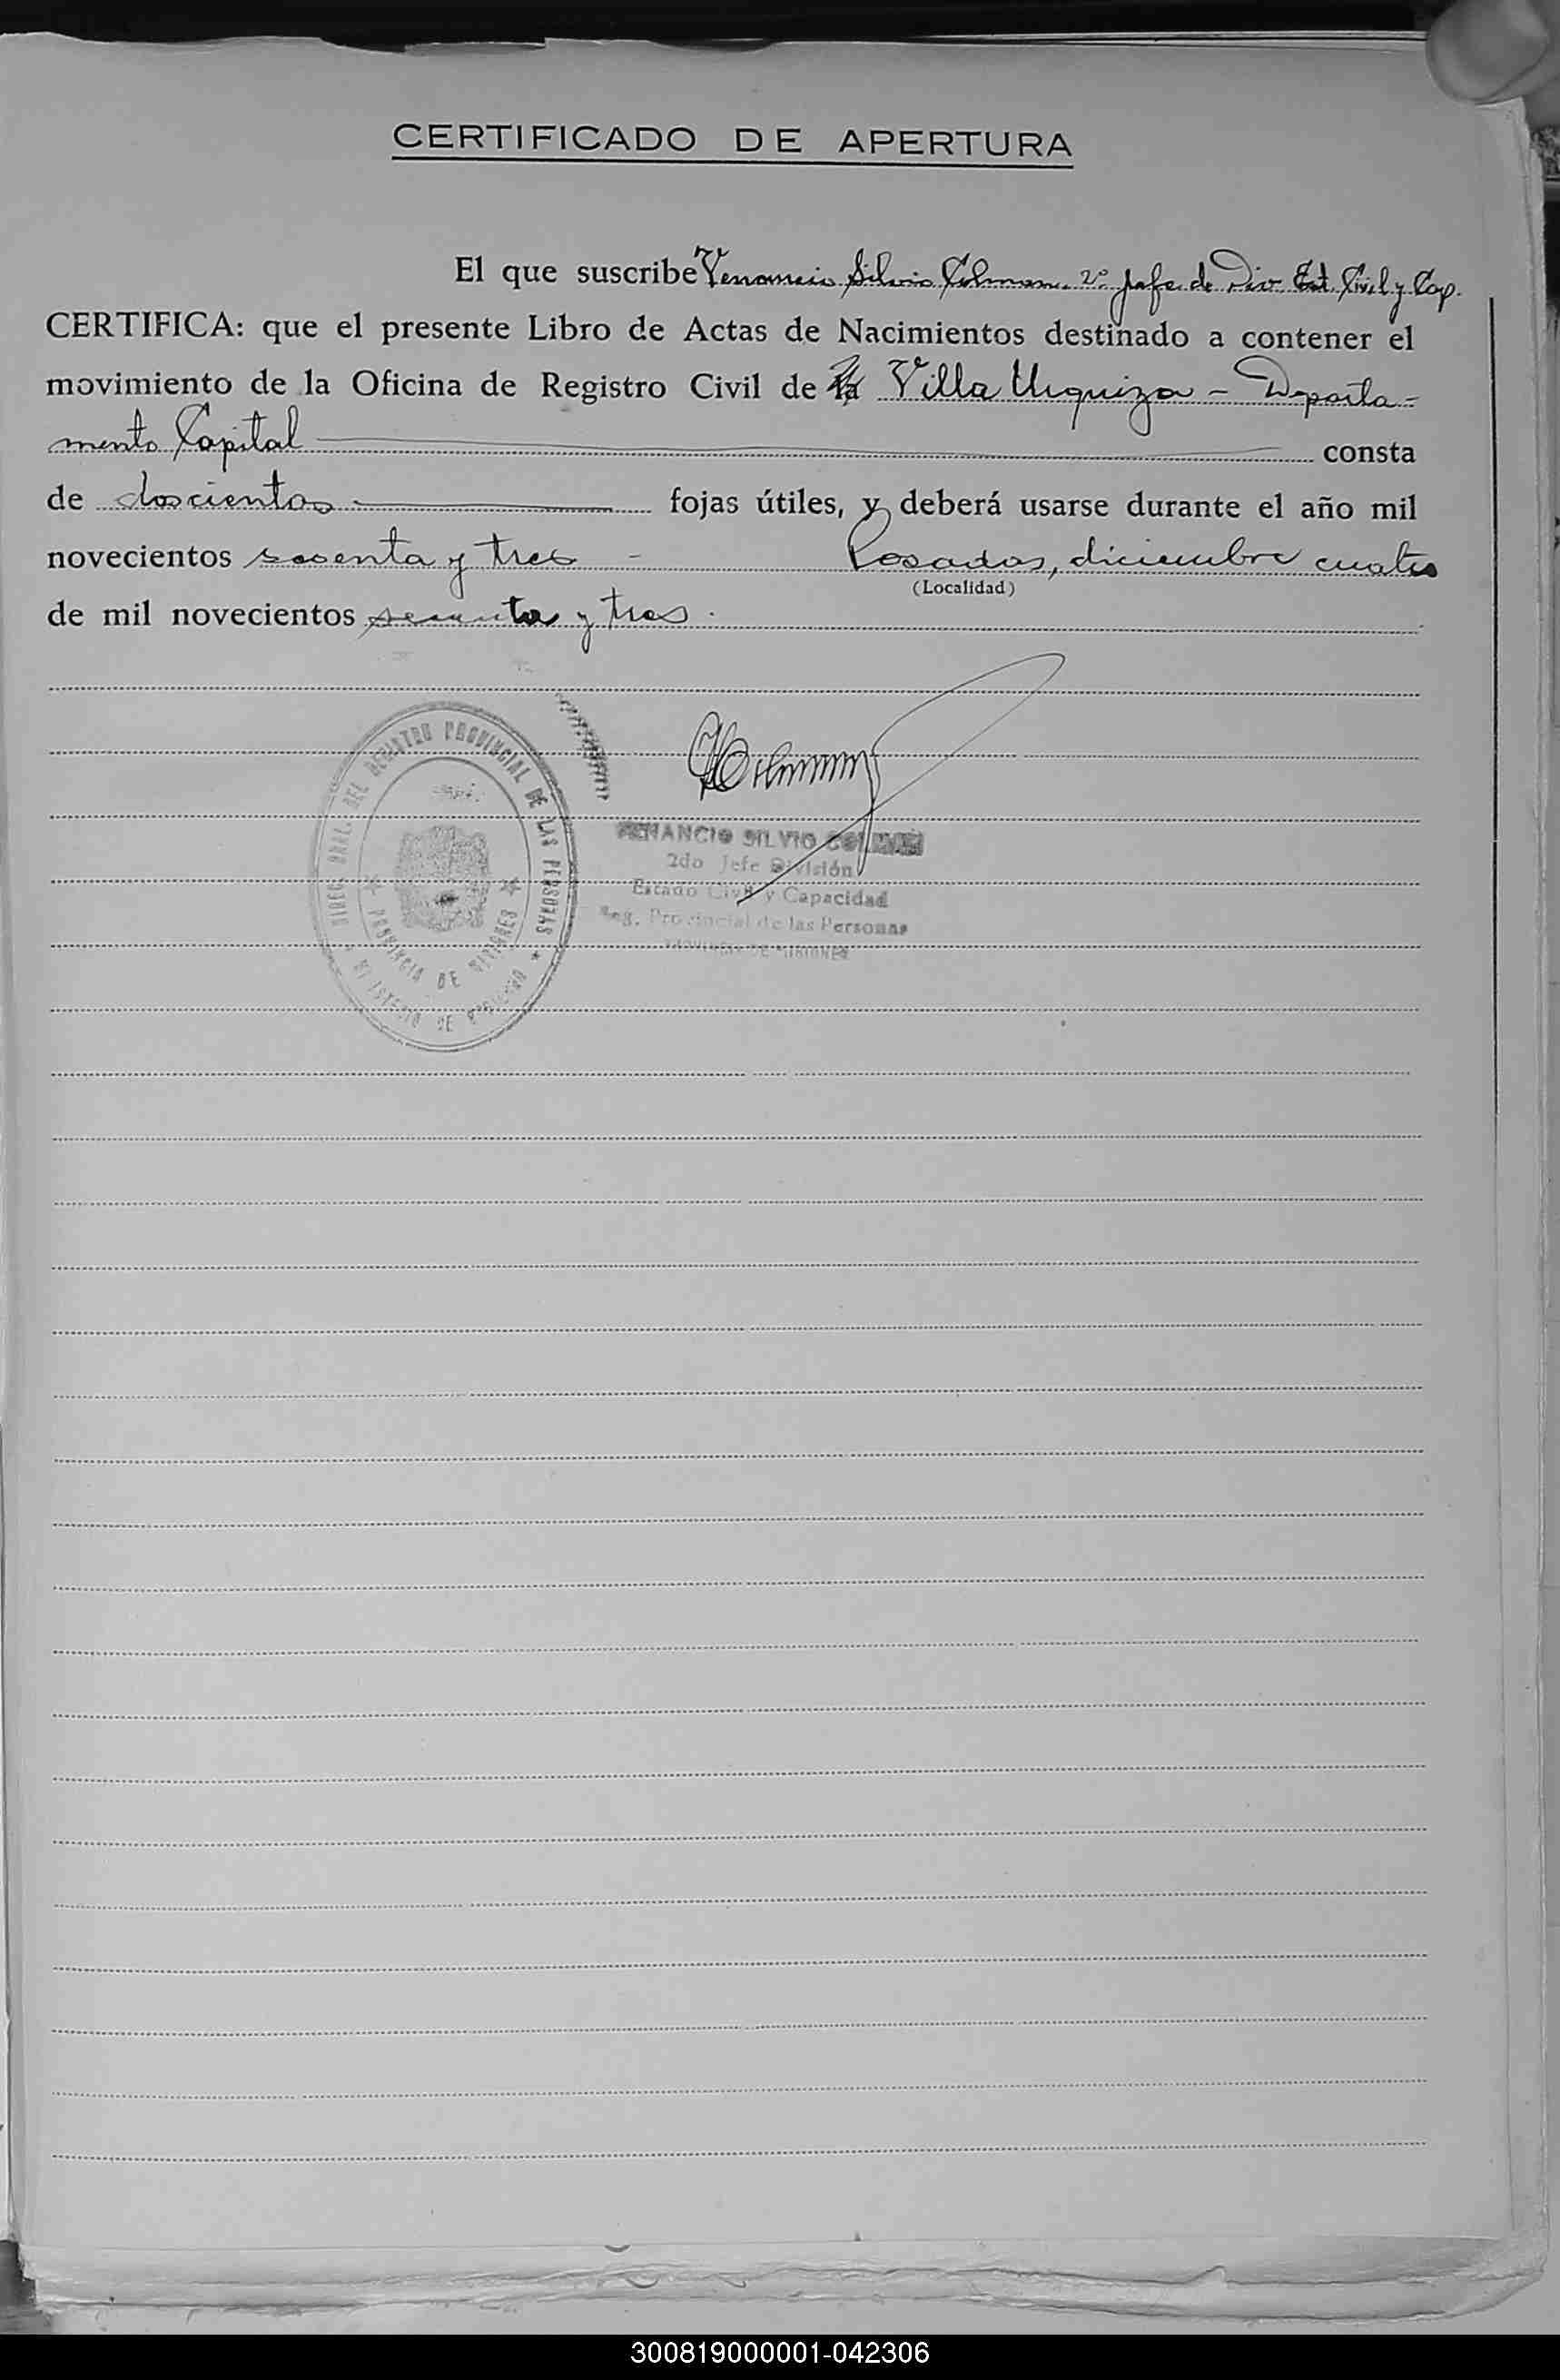 CERTIFICADO DE APERTURA
El que suscribe Venancio Silvio Colman 2º Jefe de Div. Est. Civil y Cap.
CERTIFICA: que el presente Libro de Actas de Nacimientos destinado a contener el
movimiento de la Oficina de Registro Civil de la Villa Urquiza - Departa-
mento Capital consta
de doscientos fojas útiles, y deberá usarse durante el año mil
novecientos sesenta y tres - Posadas, diciembre cuatro
(Localidad)
de mil novecientos sesenta y tres.
DIREC. GRAL. DEL REGISTRO PROVINCIAL DE LAS PERSONAS
PROVINCIA DE MISIONES
MINISTERIO DE GOBIERNO
VENANCIO SILVIO COLMAN
2do Jefe División
Estado Civil y Capacidad
Reg. Provincial de las Personas
PROVINCIA DE MISIONES
300819000001-042306